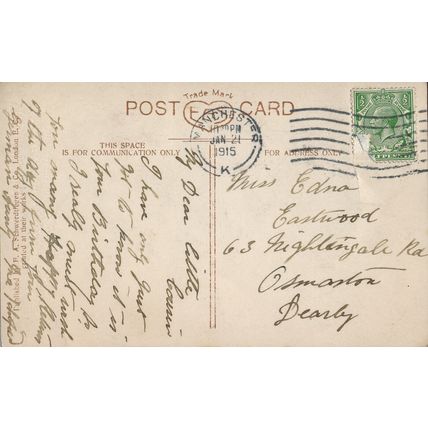 Trade Mark
POST CARD
THIS SPACE
IS FOR COMMUNICATION ONLY
FOR ADDRESS ONLY
MANCHESTER
PM
JAN 21
1915
K
Miss Edna
Eastwood
63 Nightingale Rd
Osmaston
Dearby
My Dear little Cousin
I have only just
to know it is
your Birthday so
I really must wish
you many Happy Returns
of the day from your
London E.C.
printed at their works